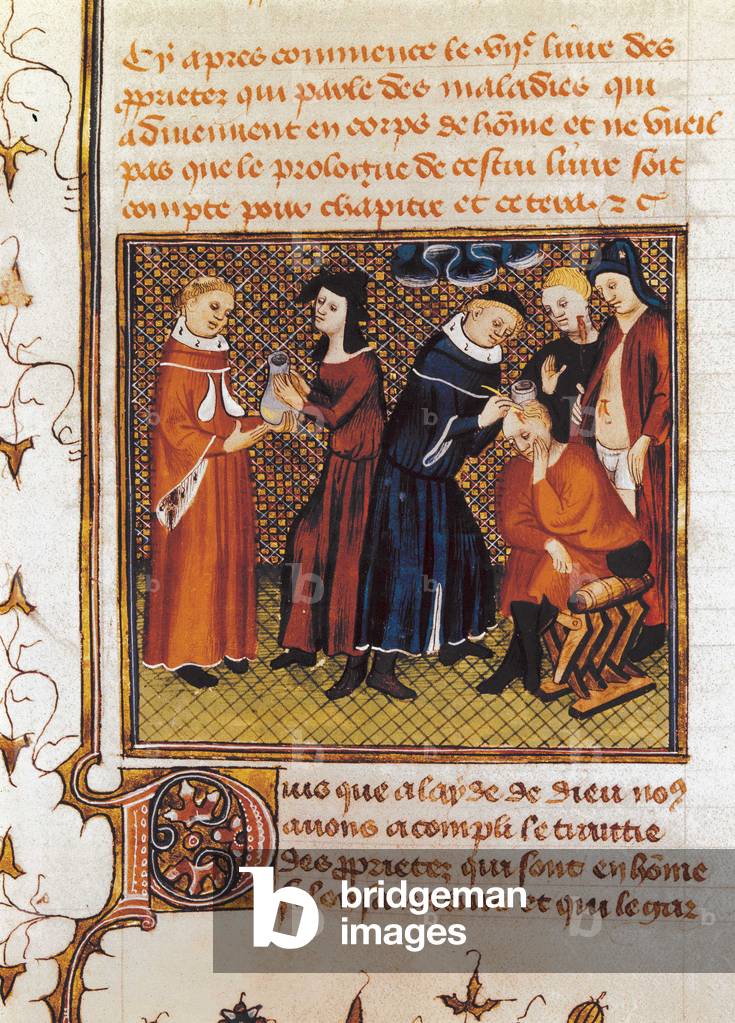 Cy apres commence le .vije livre des
pprietez qui parle des maladies qui
adviennent en corps de hōme et ne vueil
pas que le prologue de cestui livre soit
compte pour chapitre et cetera. z c
Puis que a layde de dieu nos
avons acompli le traittie
des pprietez qui sont en hōme
et qui le gar
bridgeman
images